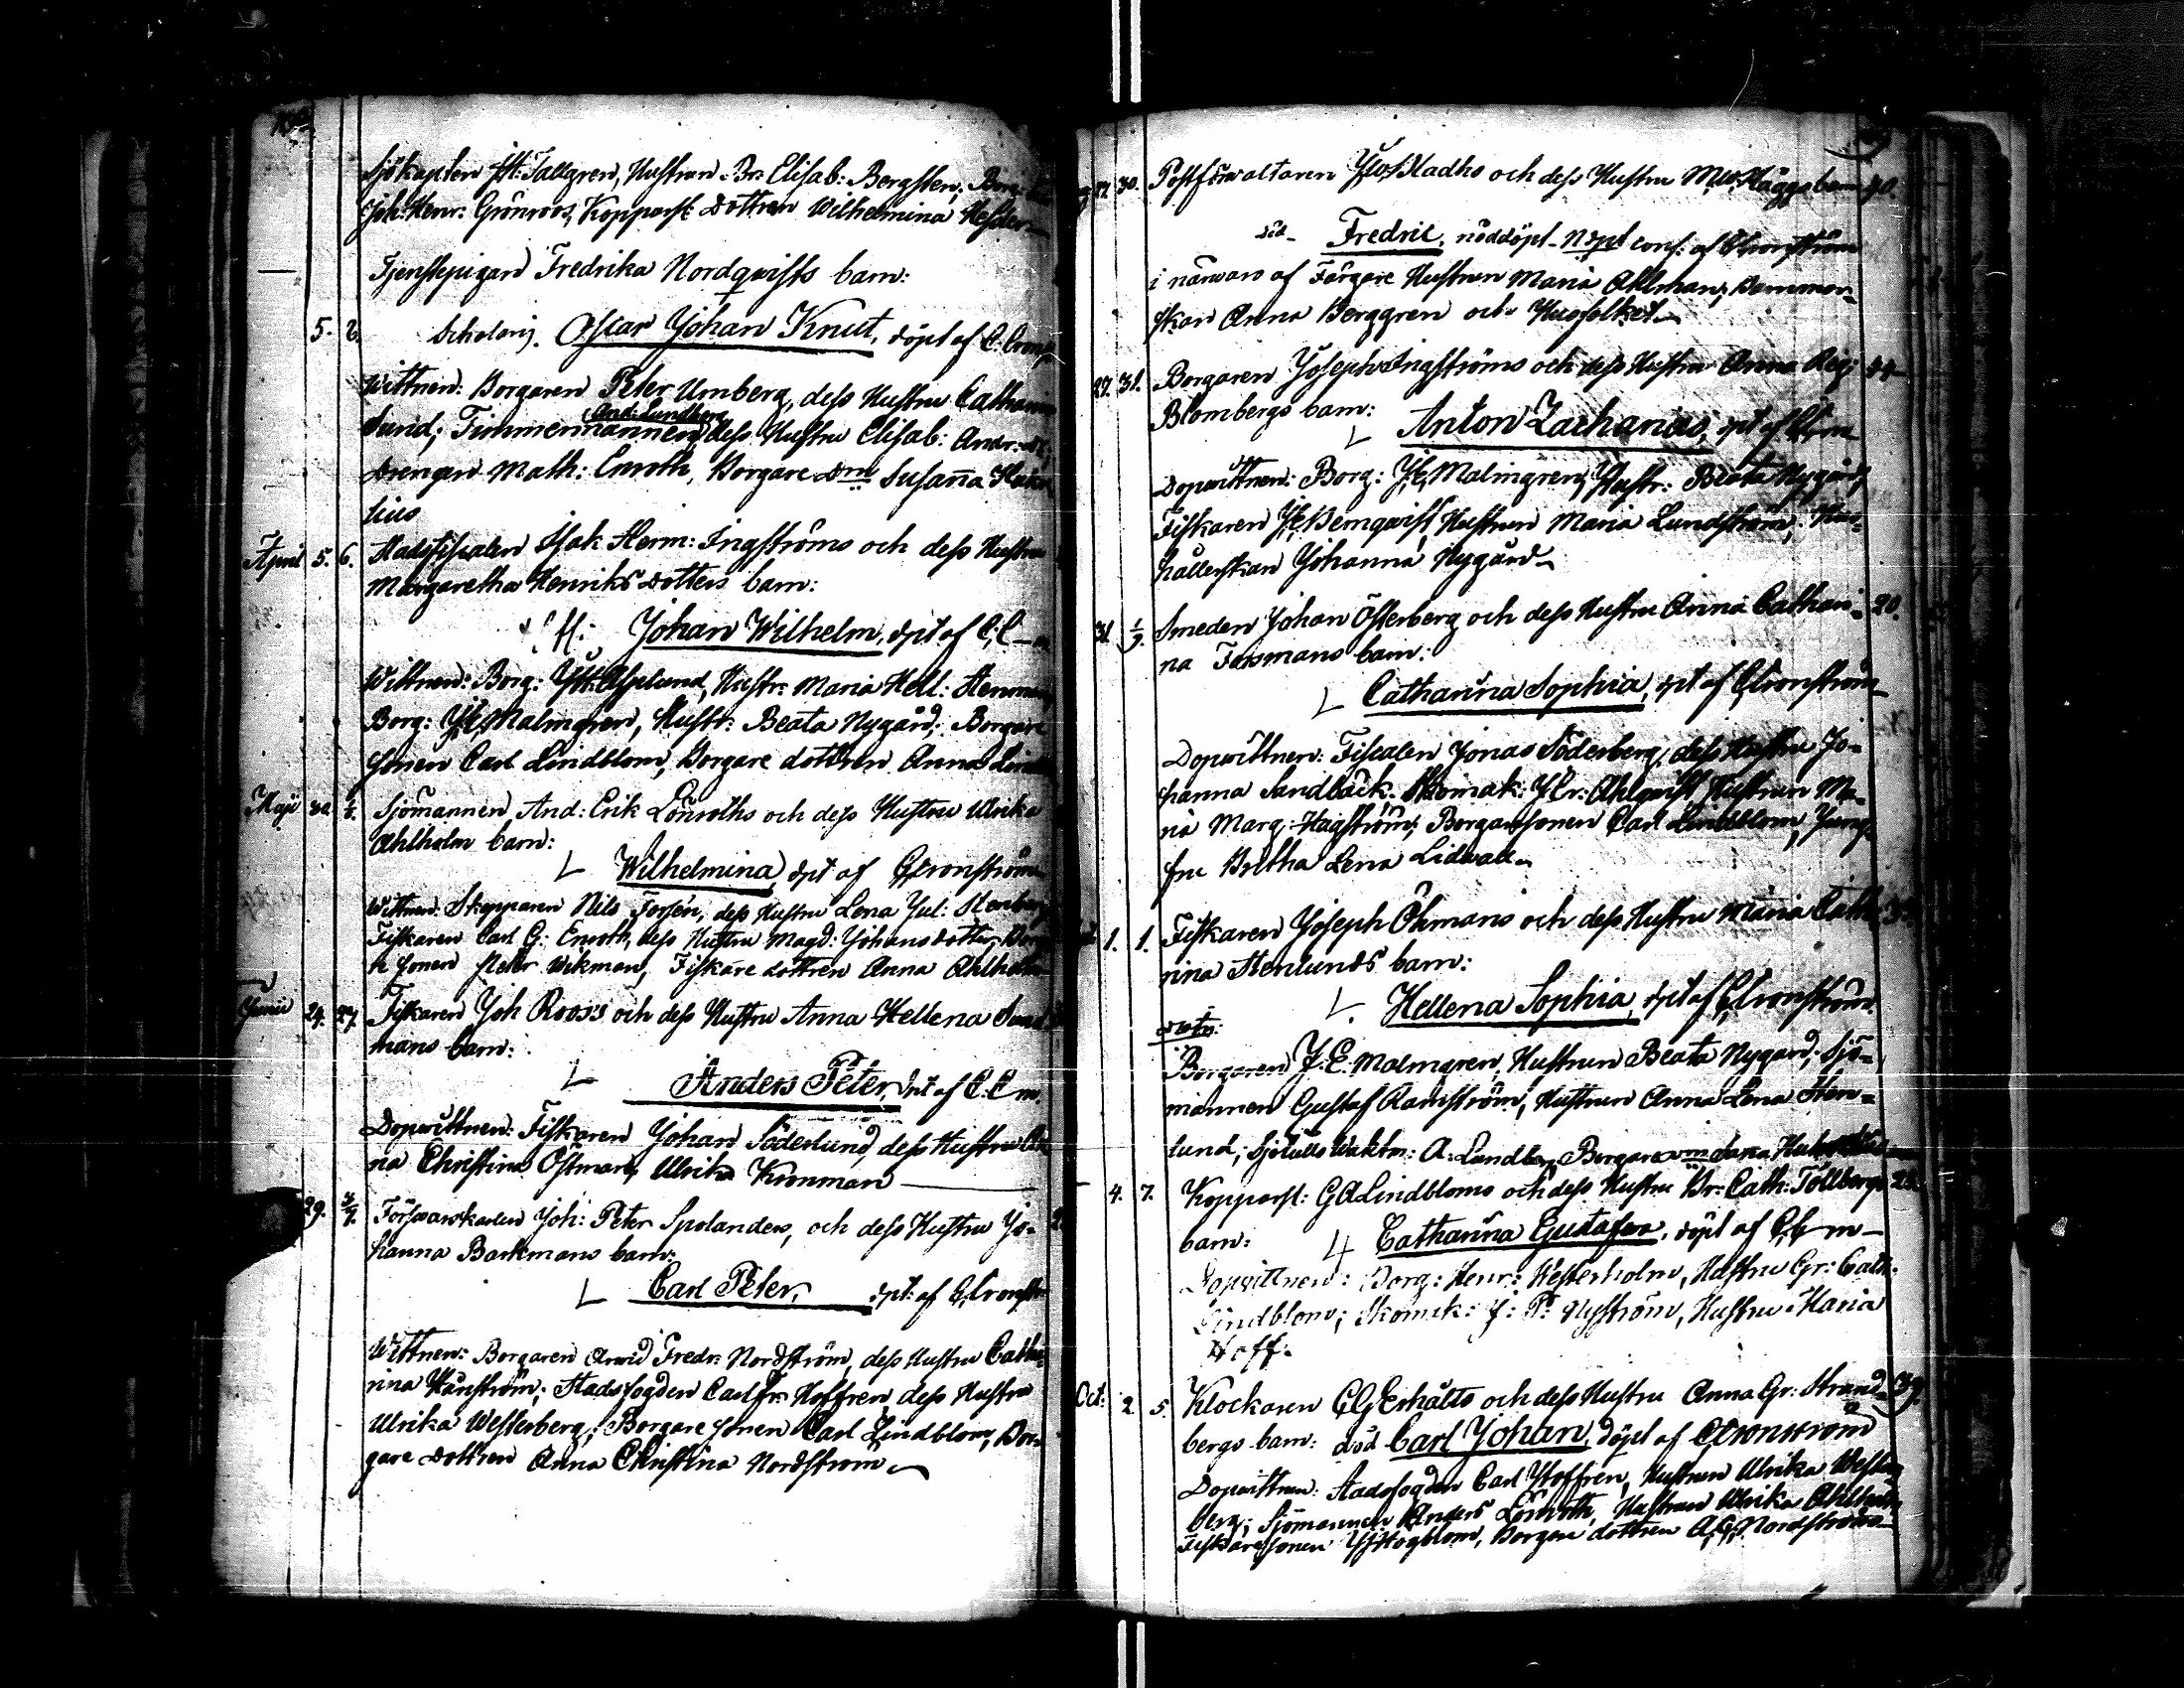 Sjökapten Tallgren, Hustrun Br: Elisab: Bergsten, Borg:
Joh: Henr: Grönroos, Kopparsl: dottren Wilhelmina
Tjenstepigan Fredrika Nordqwists barn:
5. Oscar Johan Knut, döpt af C. Cron
Wittnen: Borgaren Peter Umberg, dess Hustru Catharina
And: Lundberg
Sund; Timmermannen dess Hustru Elisab: Andr:
Drengen Math: Enroth, Borgare Susanna
lius
April 5. 6. Stadsfiscalen Isak Herm: Ingströms och dess Hustru
Margaretha Henriksdotters barn:
Johan Wilhelm, dpt af C. C
Wittnen: Borg: Asplund, Hustr: Maria Hell:
Borg: J. E. Malmgren, Hustr: Beata Nygård; Borgare
sonen Carl Lindblom, Borgare dottren Anna
Maji 30. Sjömannen And: Erik Lönroths och dess Hustru Ulrika
Ahlholm barn:
L Wilhelmina, dpt af C. Cronström
Wittnen: Skepparen Nils Forsén, dess Hustru Lena Jul: Stenberg
Fiskaren Carl G: Enroth, dess Hustru Magd: Johansdotter, Borga
re sonen Peter Wikman, Fiskare dottren Anna Ahlholm
Junii 24. 27. Fiskaren Joh Rooss och dess Hustru Anna Hellena Sund
mans barn:
L Anders Peter, dpt af C. C m.
Dopwittnen: Fiskaren Johan Söderlund, dess Hustru
na Christina Östman, Ulrika Kronman
29. Försvarskarlen Joh: Peter Spolanders, och dess Hustru Jo-
hanna Barkmans barn:
L Carl Peter, dpt af C. Cronstr
Wittnen: Borgaren Arvid Fredr: Nordström, dess Hustru Catha-
rina; Stadsfogden Carl Fr: Hoffren, dess Hustru
Ulrika Westerberg; Borgare sonen Carl Lindblom, Bor-
gare dottren Anna Christina Nordström
30. Postförvaltaren och dess Hustru Häggs barn
död Fredric, nöddöpt conf: af C Cronström
i närvaro af Färgare Hustrun Maria Ahlman, Barnmor-
skan Anna Berggren och Husfolket
27. 31. Borgaren Joseph Ingströms och dess Hustru Anna Reg:
Blombergs barn:
L Anton Zacharias, dpt af
Dopwittnen: Borg: J. E. Malmgren, Hustr: Beata Nygård,
Fiskaren Bernqwist, Hustrun Maria Lundström, Hus-
hållerskan Johanna Nygård
31. Smeden Johan Österberg och dess Hustru Anna Cathari- 20.
na Forsmans barn:
L Catharina Sophia, dpt af C Cronström
Dopwittnen: Fiscalen Jonas Söderberg, dess Hustru Jo-
hanna Sandbäck. Skomak: Ahlqwist, Hustrun Ma-
ria Marg: Hagström; Borgaresonen Carl Lindblom, Jung-
fru Britha Lena Lidwall
1. 1. Fiskaren Joseph Öhmans och dess Hustru Maria Catha
rina Stenlunds barn:
L. Hellena Sophia, dpt af C Cronström
Borgaren J. E. Malmgren, Hustrun Beata Nygård; Sjö-
mannen Gustaf Ramström, Hustrun Anna Lena Sten-
lund; Sjötulls Waktm: A: Lundberg, Borgare
4. 7. Kopparsl: G A Lindbloms och dess Hustru Br: Cath: Töllbergs
barn: Catharina Gustafva, döpt af C. C m
Dopwittnen: Borg: Henr: Westerholm, Hustru Gr: Cath:
Lindblom; Skomak: J: P: Nyström, Hustru Maria
Hoff.
Oct: 2. 5. Klockaren C G Ershälts och dess Hustru Anna Gr: Strand- 39.
bergs barn: död Carl Johan, döpt af C Cronström
Dopwittnen: Stadsfogden Carl Hoffren, Hustrun Ulrika Wester
berg; Sjömannen Anders Lönroth, Hustrun Ulrika Ahlholm,
Fiskaresonen Högblom, Borgare dottren A. C. Nordström